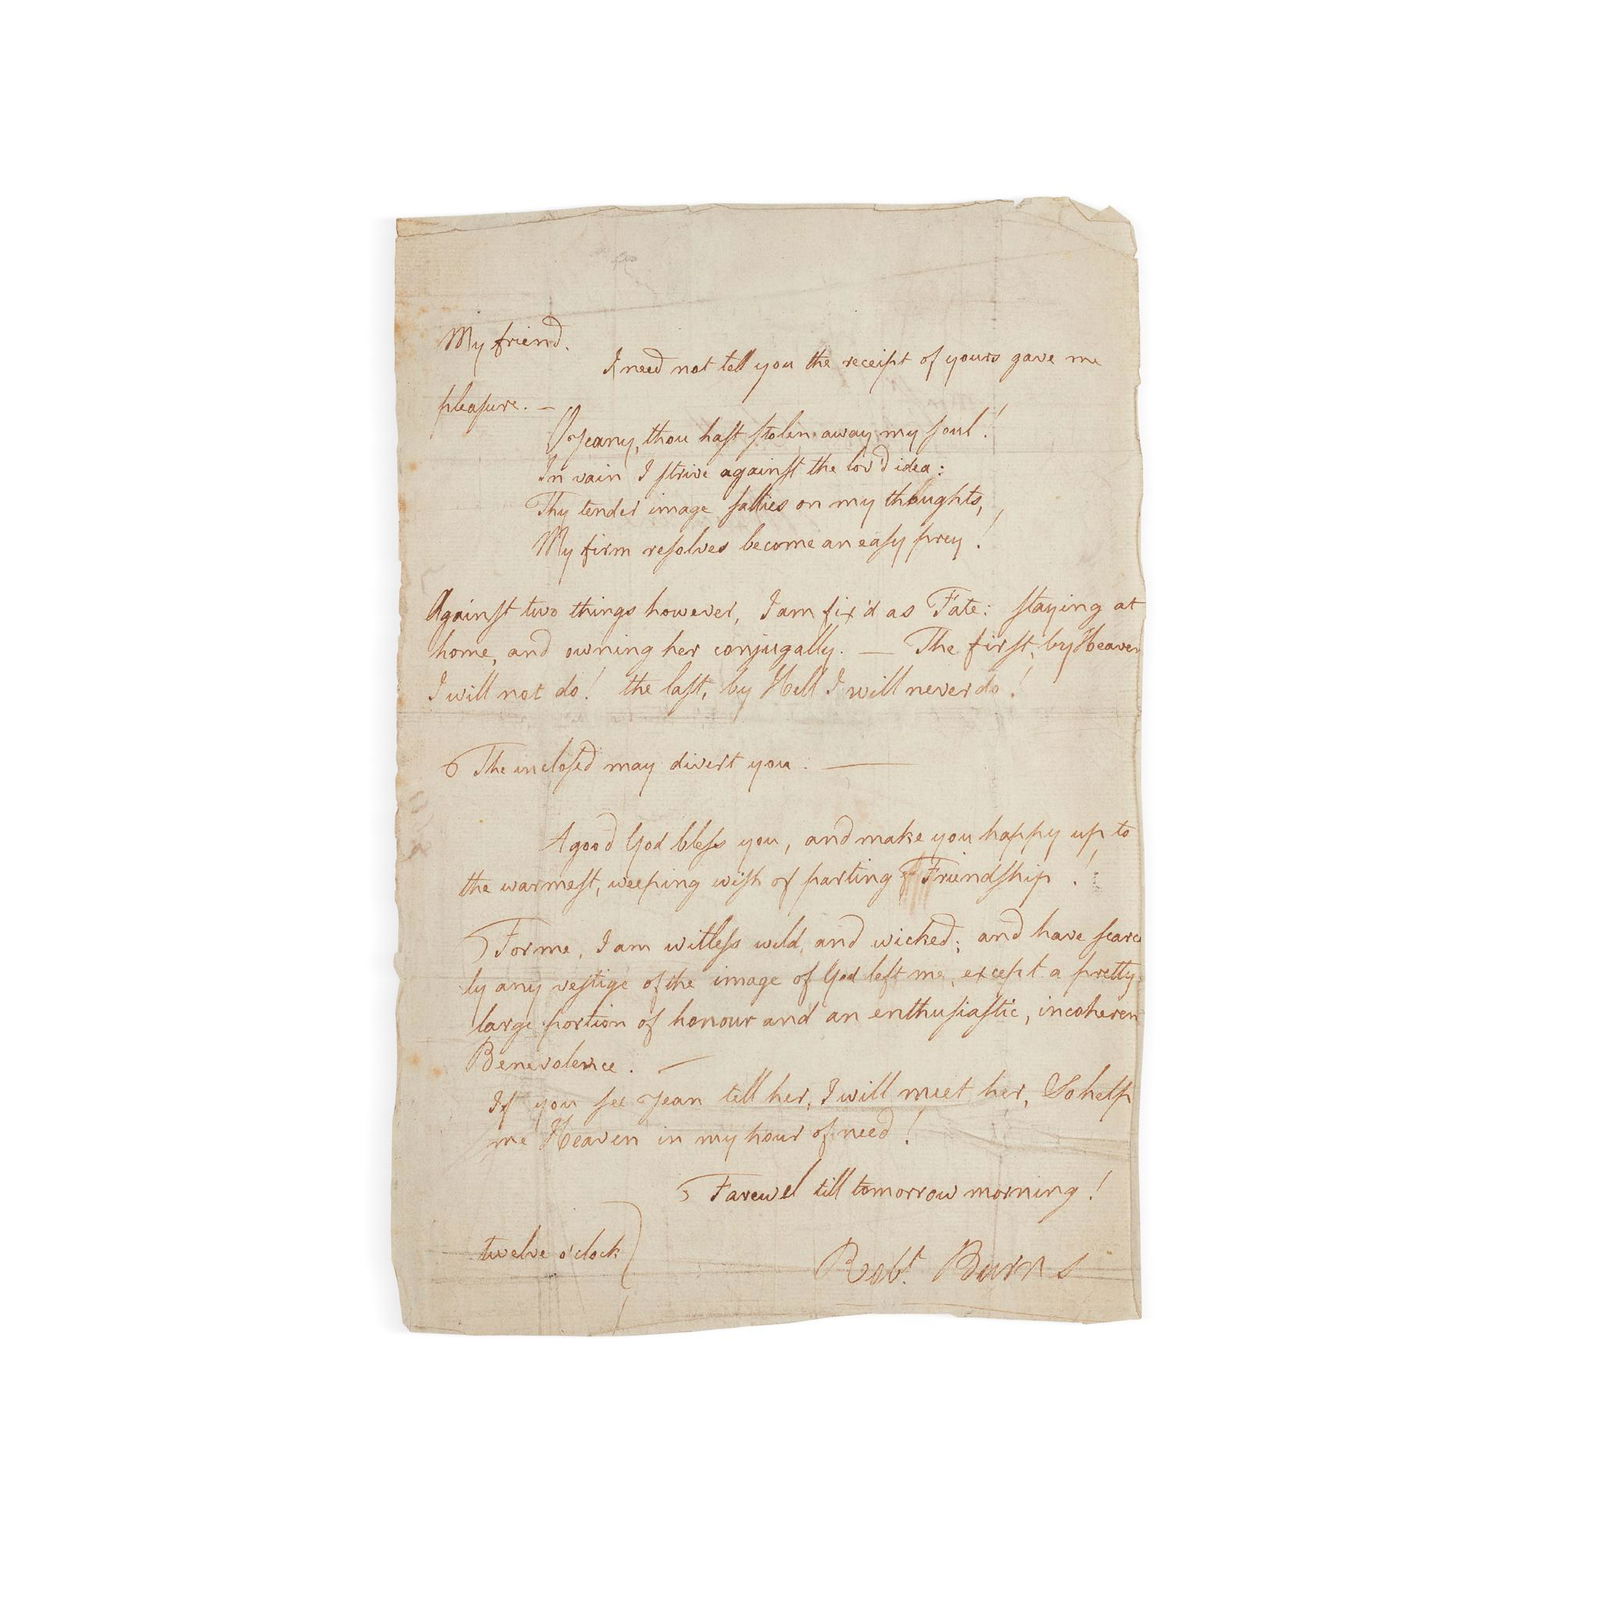 My friend.
I need not tell you the receipt of yours gave me
pleasure. —
O Jeany, thou hast stolen away my soul!
In vain I strive against the lov'd idea:
Thy tender image sallies on my thoughts,
My firm resolves become an easy prey!
Against two things however, I am fix'd as Fate: staying at
home, and owning her conjugally. — The first, by Heaven
I will not do! the last, by Hell I will never do!
The inclosed may divert you. —
A good God bless you, and make you happy up to
the warmest, weeping wish of parting Friendship!
For me, I am witless wild, and wicked; and have scarce
ly any vestige of the image of God left me, except a pretty
large portion of honour and an enthusiastic, incoheren
Benevolence. —
If you see Jean tell her, I will meet her, So help
me Heaven in my hour of need!
Farewel till tomorrow morning!
twelve o'clock
Robt. Burns